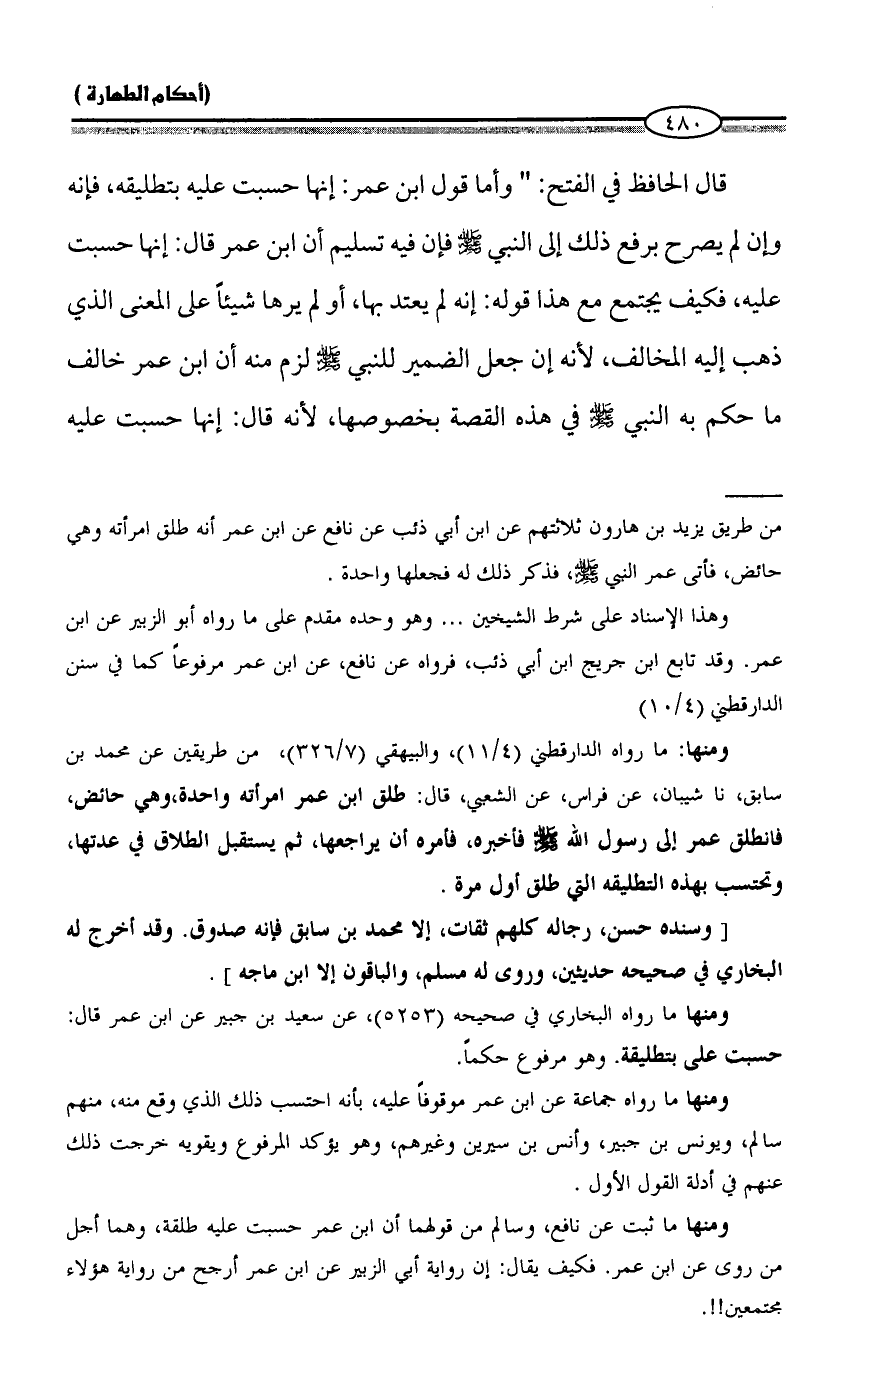 (أحكام الطهارة )
٤٨٠
قال الحافظ في الفتح: " وأما قول ابن عمر: إنها حسبت عليه بتطليقه، فإنه
وإن لم يصرح برفع ذلك إلى النبي ﷺ فإن فيه تسليم أن ابن عمر قال: إنها حسبت
عليه، فكيف يجتمع مع هذا قوله: إنه لم يعتد بها، أو لم يرها شيئاً على المعنى الذي
ذهب إليه المخالف، لأنه إن جعل الضمير للنبي ﷺ لزم منه أن ابن عمر خالف
ما حكم به النبي ﷺ في هذه القصة بخصوصها، لأنه قال: إنها حسبت عليه
من طريق يزيد بن هارون ثلاثتهم عن ابن أبي ذئب عن نافع عن ابن عمر أنه طلق امرأته وهي
حائض، فأتى عمر النبي ﷺ، فذكر ذلك له فجعلها واحدة .
وهذا الإسناد على شرط الشيخين ... وهو وحده مقدم على ما رواه أبو الزبير عن ابن
عمر. وقد تابع ابن جريج ابن أبي ذئب، فرواه عن نافع، عن ابن عمر مرفوعاً كما في سنن
الدارقطني (١٠/٤)
ومنها: ما رواه الدارقطني (١١/٤)، والبيهقي (٣٢٦/٧)، من طريقين عن محمد بن
سابق، نا شيبان، عن فراس، عن الشعبي، قال: طلق ابن عمر امرأته واحدة،وهي حائض،
فانطلق عمر إلى رسول الله ﷺ فأخبره، فأمره أن يراجعها، ثم يستقبل الطلاق في عدتها،
وتحتسب بهذه التطليقه التي طلق أول مرة .
[ وسنده حسن، رجاله كلهم ثقات، إلا محمد بن سابق فإنه صدوق. وقد أخرج له
البخاري في صحيحه حديثين، وروى له مسلم، والباقون إلا ابن ماجه ] .
ومنها ما رواه البخاري في صحيحه (٥٢٥٣)، عن سعيد بن جبير عن ابن عمر قال:
حسبت على بتطليقة. وهو مرفوع حكماً.
ومنها ما رواه جماعة عن ابن عمر موقوفاً عليه، بأنه احتسب ذلك الذي وقع منه، منهم
سالم، ويونس بن جبير، وأنس بن سيرين وغيرهم، وهو يؤكد المرفوع ويقويه خرجت ذلك
عنهم في أدلة القول الأول .
ومنها ما ثبت عن نافع، وسالم من قولهما أن ابن عمر حسبت عليه طلقة، وهما أجل
من روى عن ابن عمر. فكيف يقال: إن رواية أبي الزبير عن ابن عمر أرجح من رواية هؤلاء
مجتمعين!!.